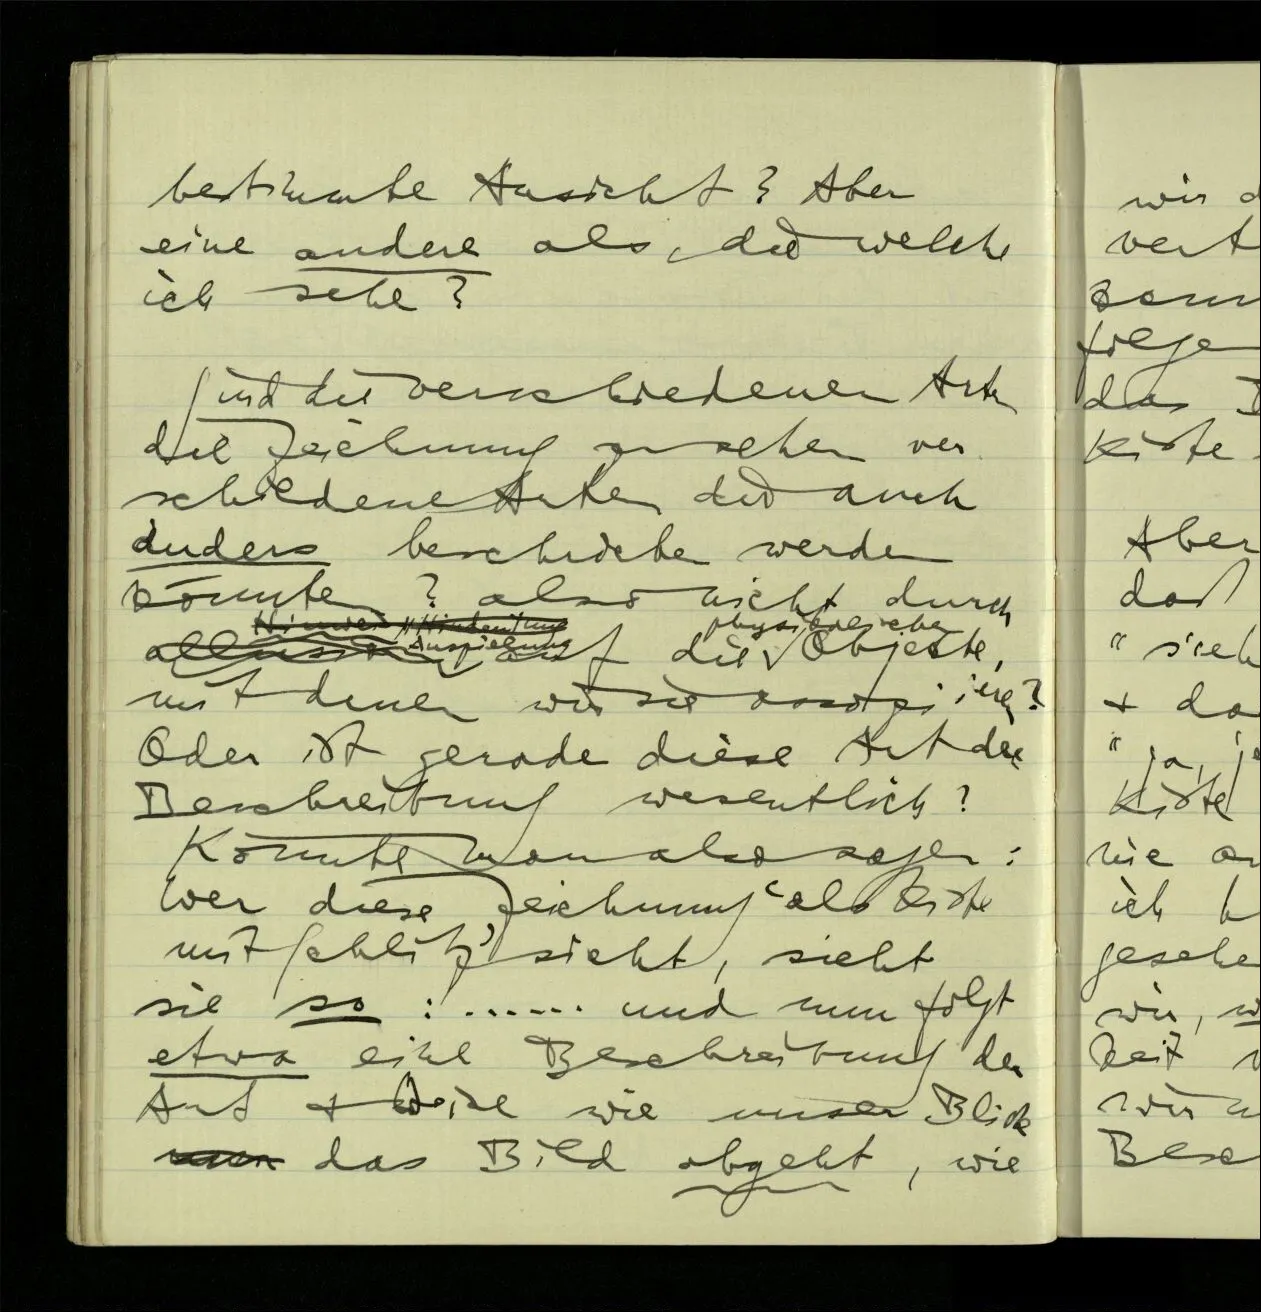 bestimmte Ansicht? Aber
eine andere als, die welche
ich sehe?
Sind die verschiedenen Arten
die Zeichnung zu sehen ver
schiedene Arten die auch
anders beschrieben werden
könnten? also nicht durch
Hinweis "Hindeutung
Anspielung physikalische
allusion auf die Objekte,
mit denen wir sie assoziieren?
Oder ist gerade diese Art der
Beschreibung wesentlich?
Könnte man also sagen:
Wer diese Zeichnung 'als Kiste
mit Schlitz' sieht, sieht
sie so: ...... und nun folgt
etwa eine Beschreibung der
Art + Weise wie unser Blick
das Bild abgeht, wie
wir
Kiste
Aber
daß
+
"ja,
Kiste
nie
ich
wir,
Zeit
wir